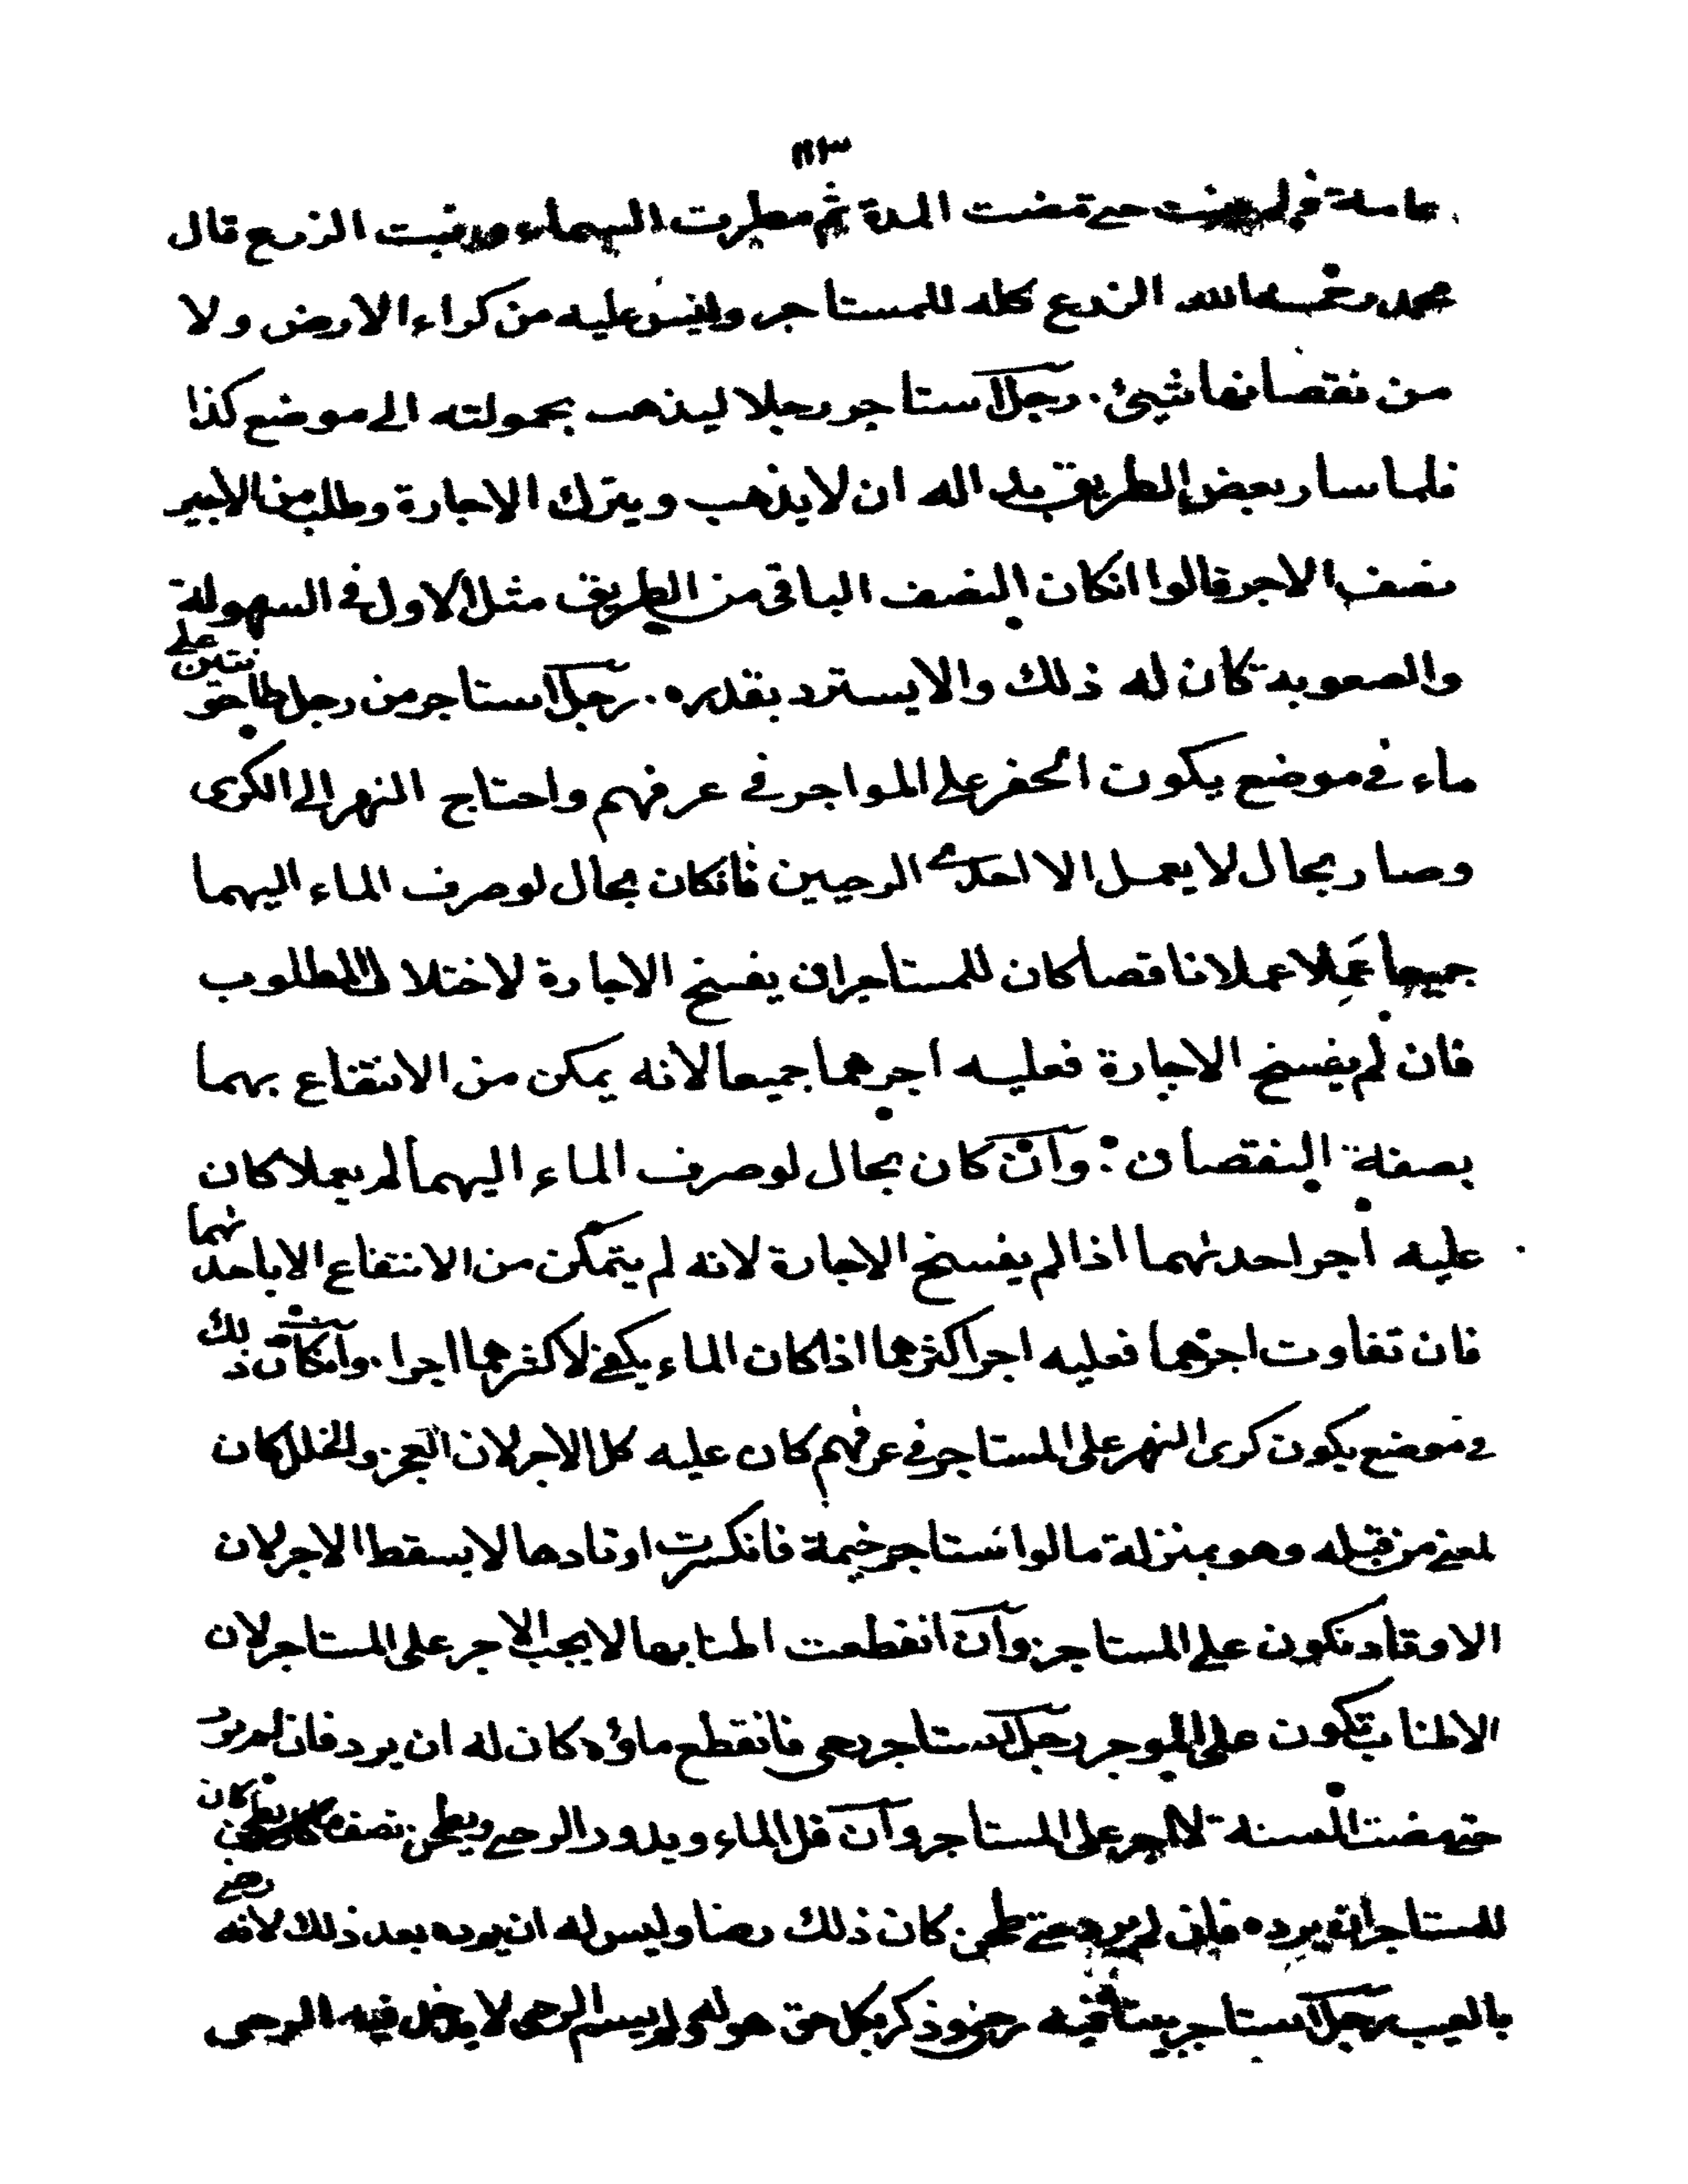 ٢٩٣
عاملة فى لم ينبت حتے مضت المدة ثم مطرت السماء ونبت الزرع قال
محمد رحمه الله الزرع كله للمستاجر وليس عليه من كراء الارض ولا
من نقصانها شيئ . رجل استاجر رجلا ليذهب بحمولته الى موضع كذا
فلما سار بعض الطريق بدا له ان لا يذهب ويترك الاجارة وطلب من الاجير
نصف الاجر قالوا انكان النصف الباقى من الطريق مثل الاول فى السهولة
والصعوبة كان له ذلك والا يسترد بقدره . رجل استاجر من رجل طاحونتين على
ماء فى موضع يكون الحفر على المواجر فى عرفهم واحتاج النهر الى الكرى
وصار بحال لا يعمل الا احدى الرحيين فانكان بحال لو صرف الماء اليهما
جميعا عملا عملا ناقصا كان للمستاجر ان يفسخ الاجارة لاختلال المطلوب
فان لم يفسخ الاجارة فعليه اجرهما جميعا لانه يمكن من الانتفاع بهما
بصفة النقصان : وان كان بحال لو صرف الماء اليهما لم يعملا كان
عليه اجر احدىهما اذا لم يفسخ الاجارة لانه لم يتمكن من الانتفاع الا باحدىهما
فان تفاوت اجرهما فعليه اجر اكثرهما اذا كان الماء يكفى لاكثرهما اجرا . وانكان ذلك
فى موضع يكون كرى النهر على المستاجر فى عرفهم كان عليه كل الاجر لان العجز والخلل كان
لمعنى من قبله وهو بمنزلة ما لو استاجر خيمة فانكسرت اوتادها لا يسقط الاجر لان
الاوتاد تكون على المستاجر وان انقطعت اطنابها لا يجب الاجر على المستاجر لان
الاطناب تكون على الموجر رجل استاجر رحى فانقطع ماؤه كان له ان يرد فان لم يرد
حتى مضت السنة لا اجر على المستاجر وان قل الماء ويدور الرحى ويطحن نصف ما كان يطحن كان
للمستاجر ان يرده فان لم يرد حتى طحن كان ذلك رضا وليس له ان يرده بعد ذلك لانه رضى
بالعيب رجل استاجر بيتا فيه رحى وذكر بكل حق هو له ولم يسم الرحى لا يدخل فيه الرحى